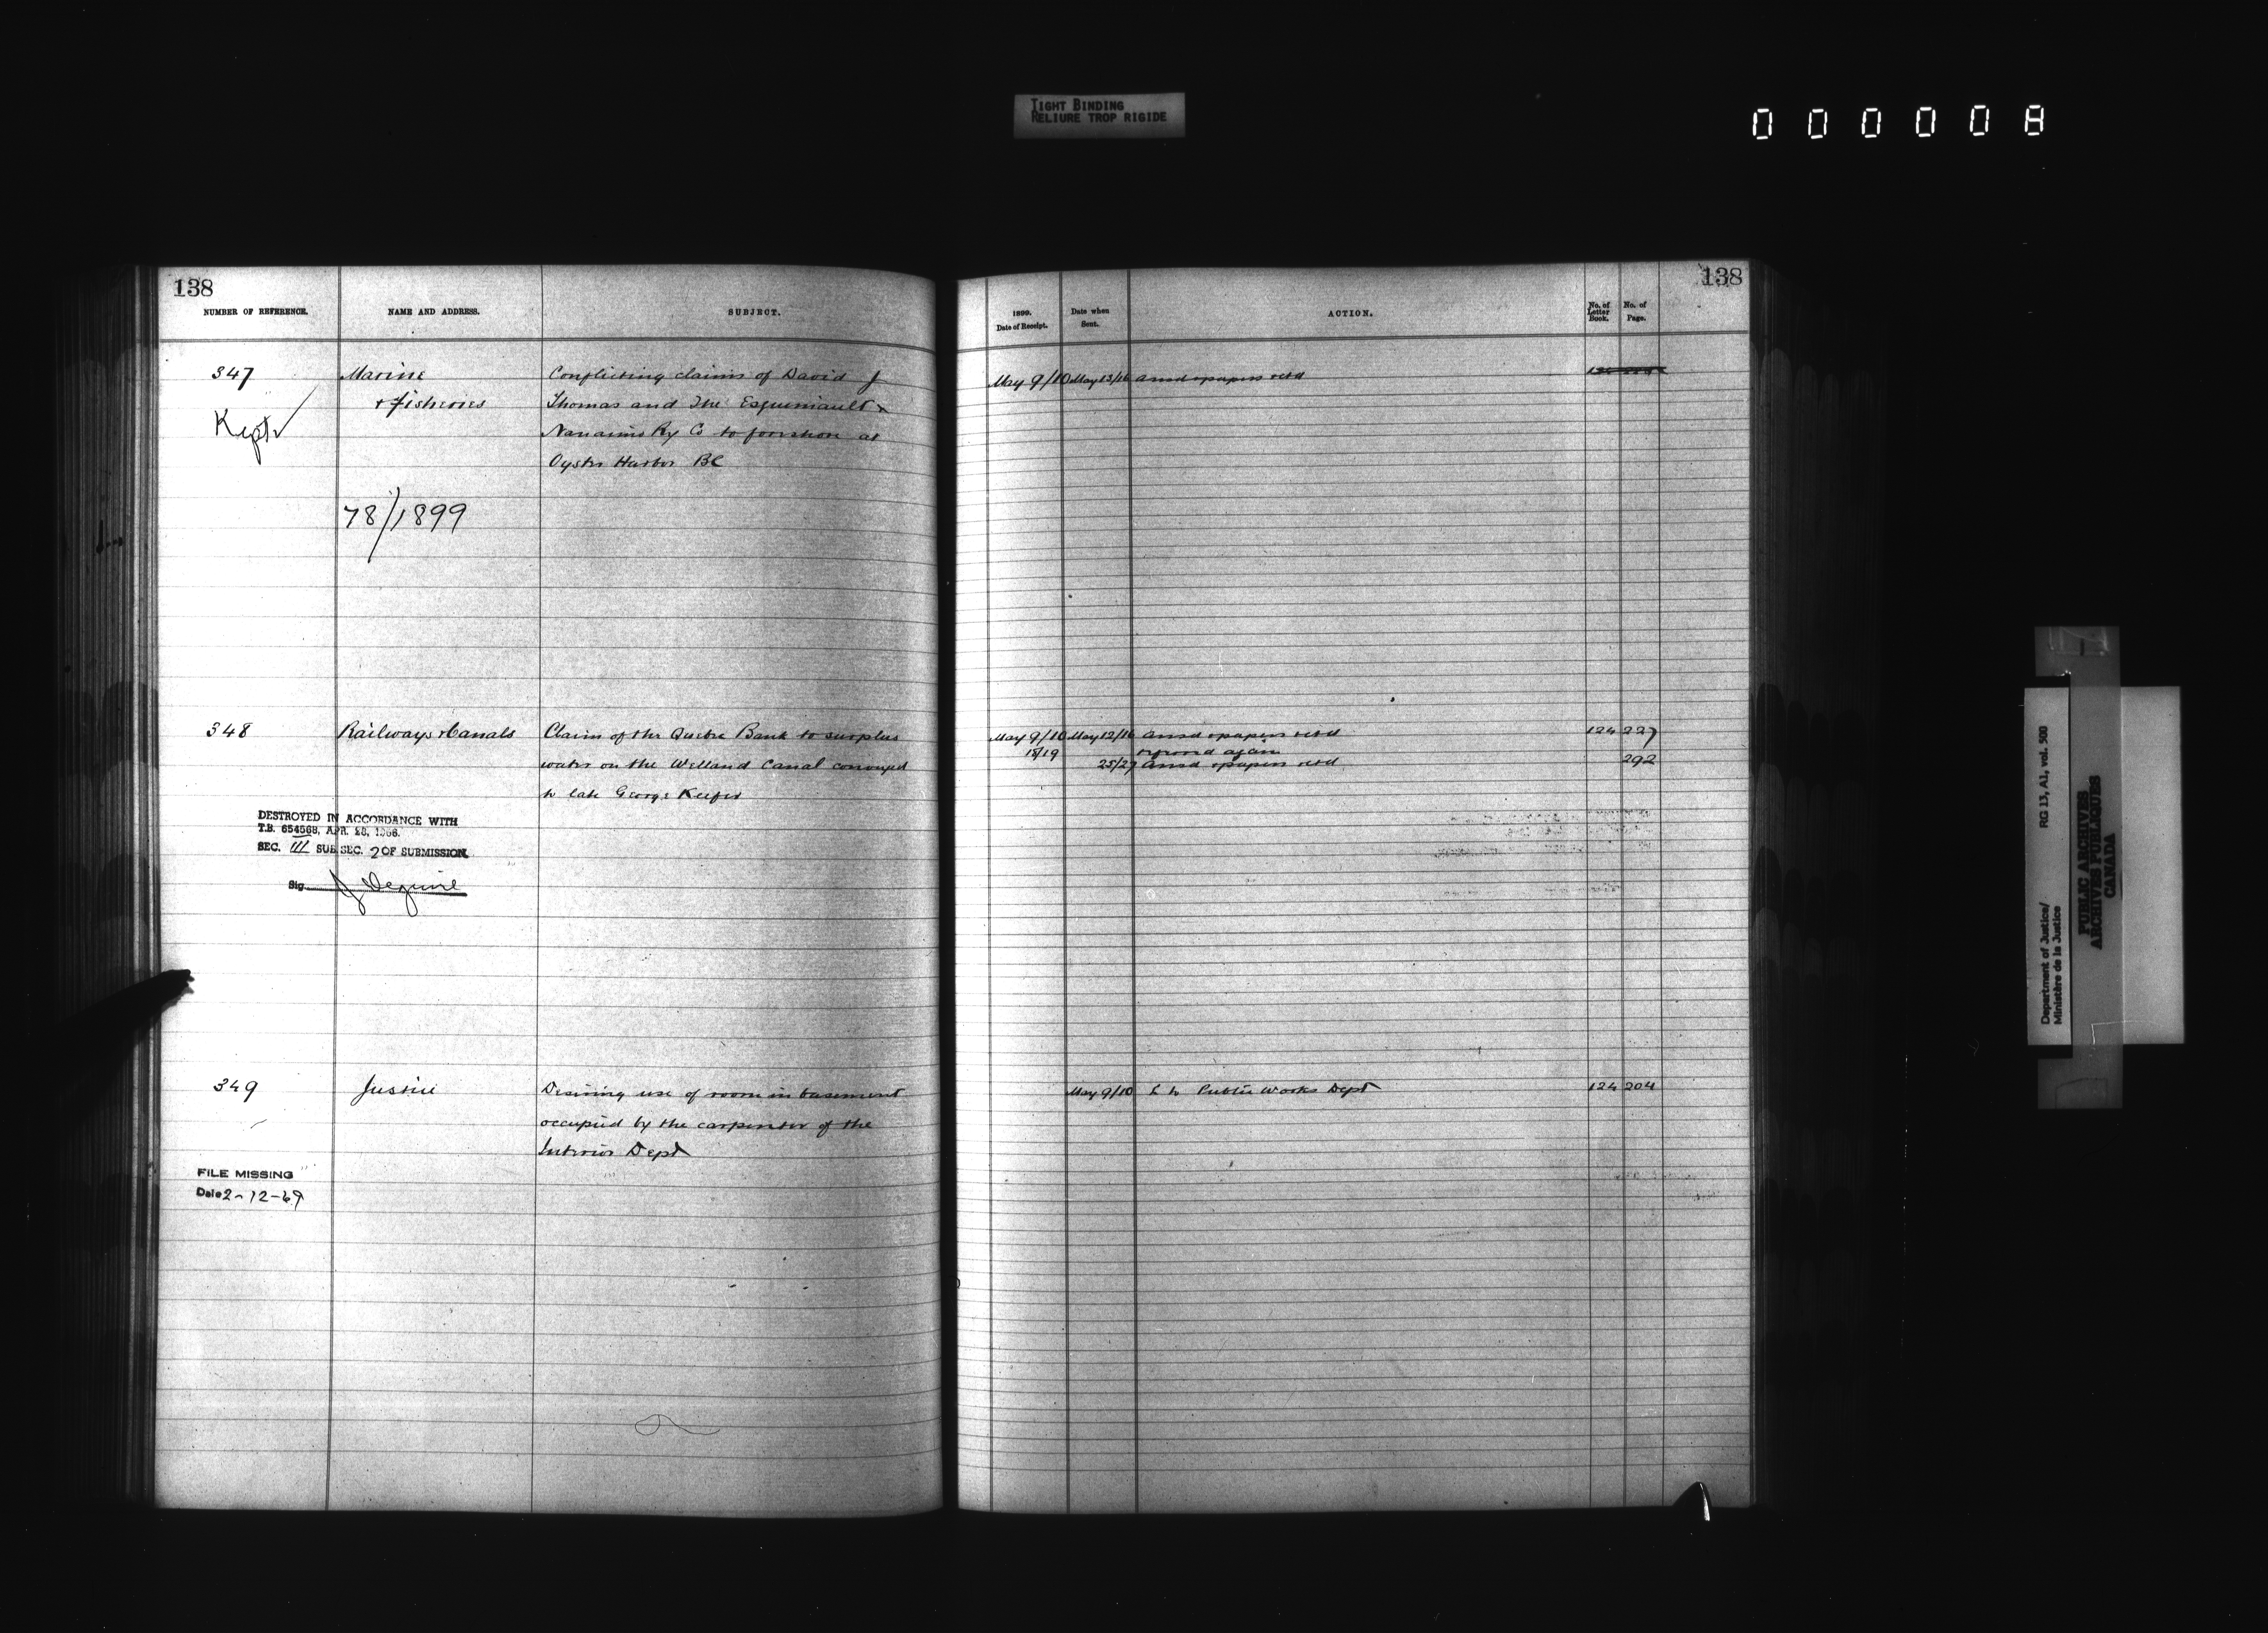 TIGHT BINDING
RELIURE TROP RIGIDE
000008
138
NUMBER OF REFERENCE.
NAME AND ADDRESS.
SUBJECT.
347
Marine
Conflicting claims of David J
+ Fisheries
Thomas and The Esquimault &
Kept
Nanaimo Ry Co to forshore at
Oyster Harbor BC
78/1899
348
Railways & Canals
Claim of the Quebec Bank to surplus
water on the Welland Canal conveyed
to late George Keefer
DESTROYED IN ACCORDANCE WITH
T.B. 654568, APR. 28, 1966.
SEC. III SUB SEC. 2 OF SUBMISSION
Sig.
349
Justice
Desiring use of room in basement
occupied by the carpenter of the
Interior Dept
FILE MISSING
Date 2-12-69
138
1899.
Date of Receipt.
Date when
Sent.
ACTION.
No. of
Letter
Book.
No. of
Page.
May 9/10 May 13/16 ansd & papers retd
May 9/10 May 12/16 ansd & papers retd 124 227
18/19 referred again
25/27 ansd & papers retd 292
May 9/10 L to Public Works Dept 124 204
Department of Justice/
Ministère de la Justice
RG 13, A1, vol. 500
PUBLIC ARCHIVES
ARCHIVES PUBLIQUES
CANADA